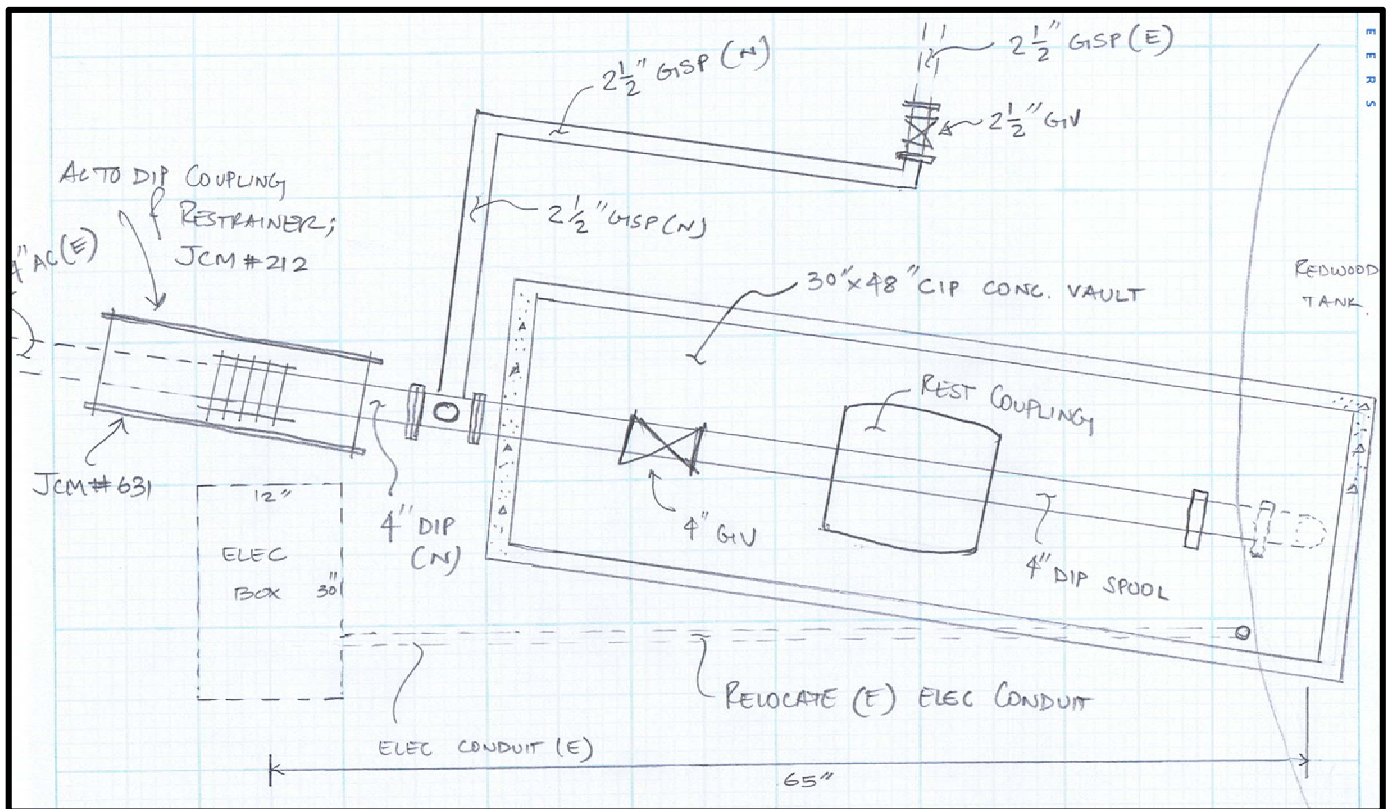 2 1/2" GSP (E)
EERS
2 1/2" GSP (N)
2 1/2" GV
AC TO DIP COUPLING
& RESTRAINER;
JCM #212
2 1/2" GSP (N)
4" AC (E)
30"x48" CIP CONC. VAULT
REDWOOD
TANK
REST COUPLING
JCM #631
12"
4" DIP
(N)
4" GV
ELEC
BOX 30"
4" DIP SPOOL
RELOCATE (E) ELEC CONDUIT
ELEC CONDUIT (E)
65"